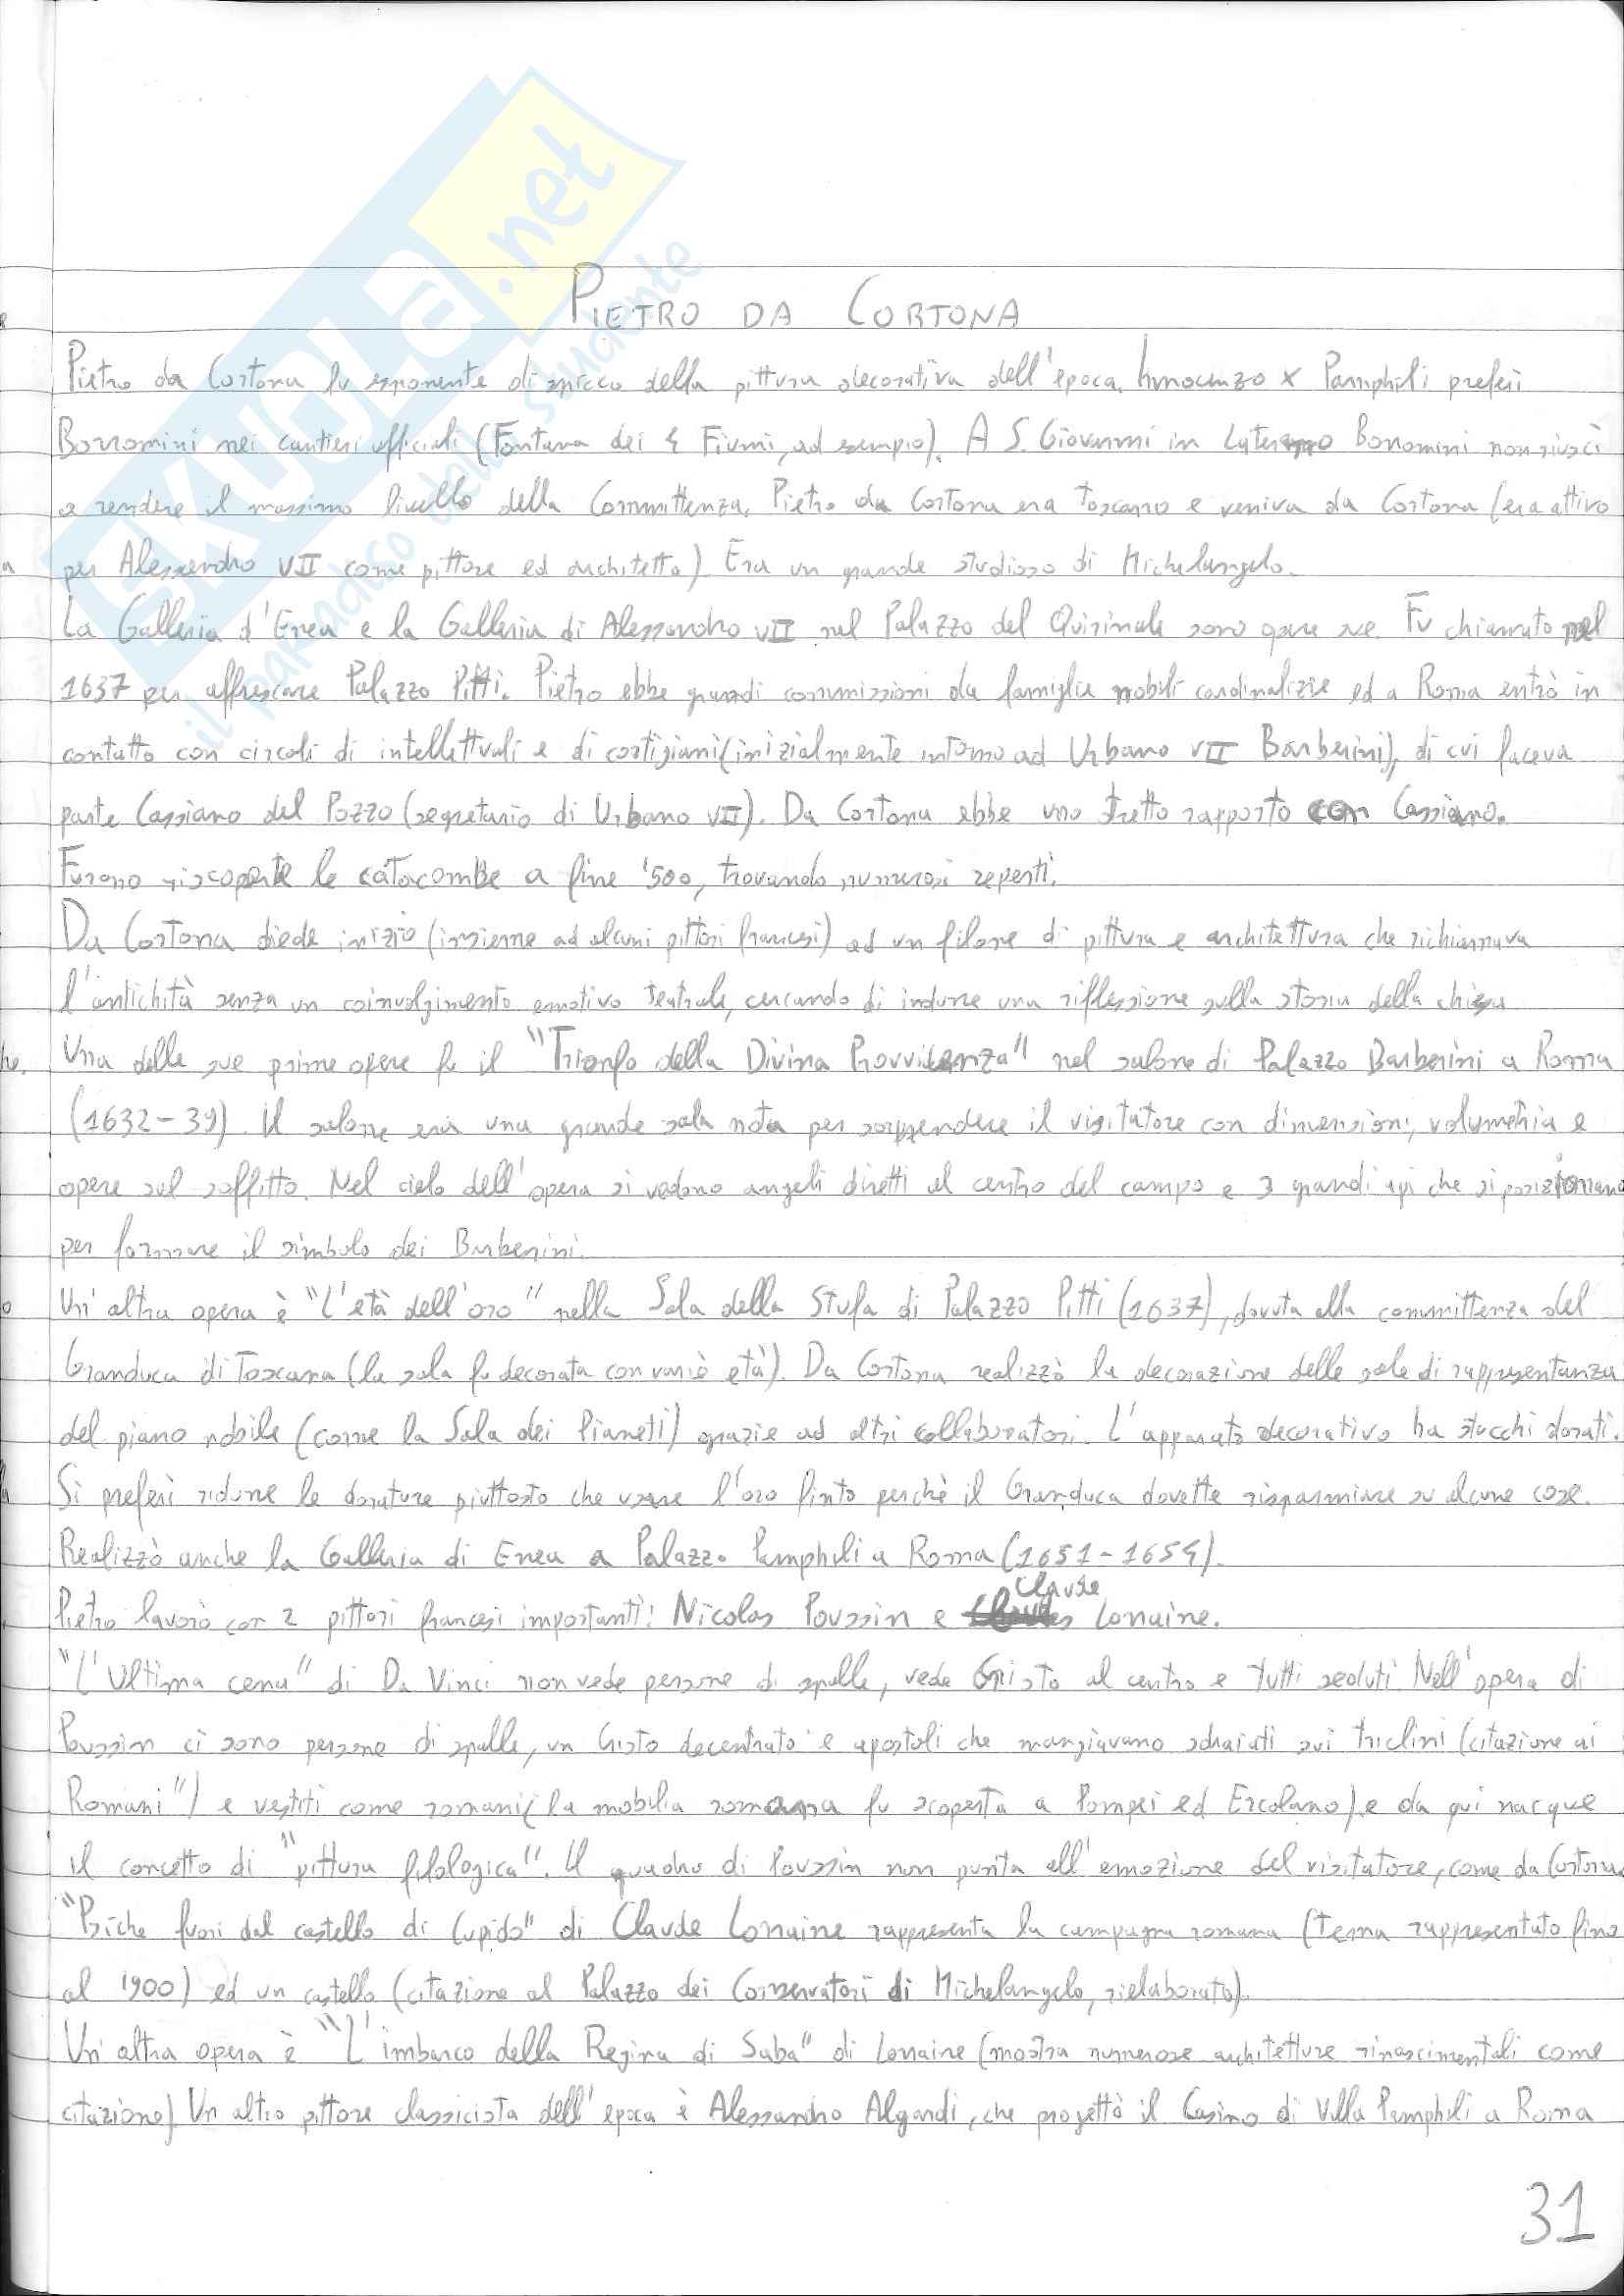 SKUOLA.net
il paradiso dello studente
PIETRO DA CORTONA
Pietro da Cortona fu esponente di spicco della pittura decorativa dell'epoca. Innocenzo X Pamphili preferì
Borromini nei cantieri ufficiali (Fontana dei 4 Fiumi, ad esempio). A S. Giovanni in Laterano Borromini non riuscì
a rendere il massimo livello della Committenza. Pietro da Cortona era toscano e veniva da Cortona (era attivo
per Alessandro VII come pittore ed architetto) Era un grande studioso di Michelangelo.
La Galleria d'Enea e la Galleria di Alessandro VII nel Palazzo del Quirinale sono opere sue. Fu chiamato nel
1637 per affrescare Palazzo Pitti. Pietro ebbe grandi commissioni da famiglie nobili cardinalizie ed a Roma entrò in
contatto con circoli di intellettuali e di cortigiani (inizialmente intorno ad Urbano VII Barberini), di cui faceva
parte Cassiano del Pozzo (segretario di Urbano VII). Da Cortona ebbe uno stretto rapporto con Cassiano.
Furono riscoperte le catacombe a fine '500, trovando numerosi reperti.
Da Cortona diede inizio (insieme ad alcuni pittori francesi) ad un filone di pittura e architettura che richiamava
l'antichità senza un coinvolgimento emotivo teatrale, cercando di indurre una riflessione sulla storia della chiesa
Una delle sue prime opere fu il "Trionfo della Divina Provvidenza" nel salone di Palazzo Barberini a Roma
(1632-39). Il salone era una grande sala nota per sorprendere il visitatore con dimensioni, volumetria e
opere sul soffitto. Nel cielo dell'opera si vedono angeli diretti al centro del campo e 3 grandi api che si posizionano
per formare il simbolo dei Barberini.
Un'altra opera è "L'età dell'oro" nella Sala della Stufa di Palazzo Pitti (1637), dovuta alla committenza del
Granduca di Toscana (la sala fu decorata con varie età). Da Cortona realizzò la decorazione delle sale di rappresentanza
del piano nobile (come la Sala dei Pianeti) grazie ad altri collaboratori. L'apparato decorativo ha stucchi dorati.
Si preferì ridurre le dorature piuttosto che usare l'oro finto perchè il Granduca dovette risparmiare su alcune cose.
Realizzò anche la Galleria di Enea a Palazzo Pamphili a Roma (1651-1654).
Pietro lavorò con 2 pittori francesi importanti: Nicolas Poussin e Claude Lorraine.
"L'Ultima cena" di Da Vinci non vede persone di spalle, vede Cristo al centro e tutti seduti. Nell'opera di
Poussin ci sono persone di spalle, un Cristo decentrato e apostoli che mangiavano sdraiati sui triclini (citazione ai
Romani") e vestiti come romani (la mobilia romana fu scoperta a Pompei ed Ercolano) e da qui nacque
il concetto di "pittura filologica". Il quadro di Poussin non punta all'emozione del visitatore, come da Cortona.
"Psiche fuori dal castello di Cupido" di Claude Lorraine rappresenta la campagna romana (tema rappresentato fino
al 1900) ed un castello (citazione al Palazzo dei Conservatori di Michelangelo, rielaborato).
Un'altra opera è "L'imbarco della Regina di Saba" di Lorraine (mostra numerose architetture rinascimentali come
citazione) Un altro pittore classicista dell'epoca è Alessandro Algardi, che progettò il Casino di Villa Pamphili a Roma
31